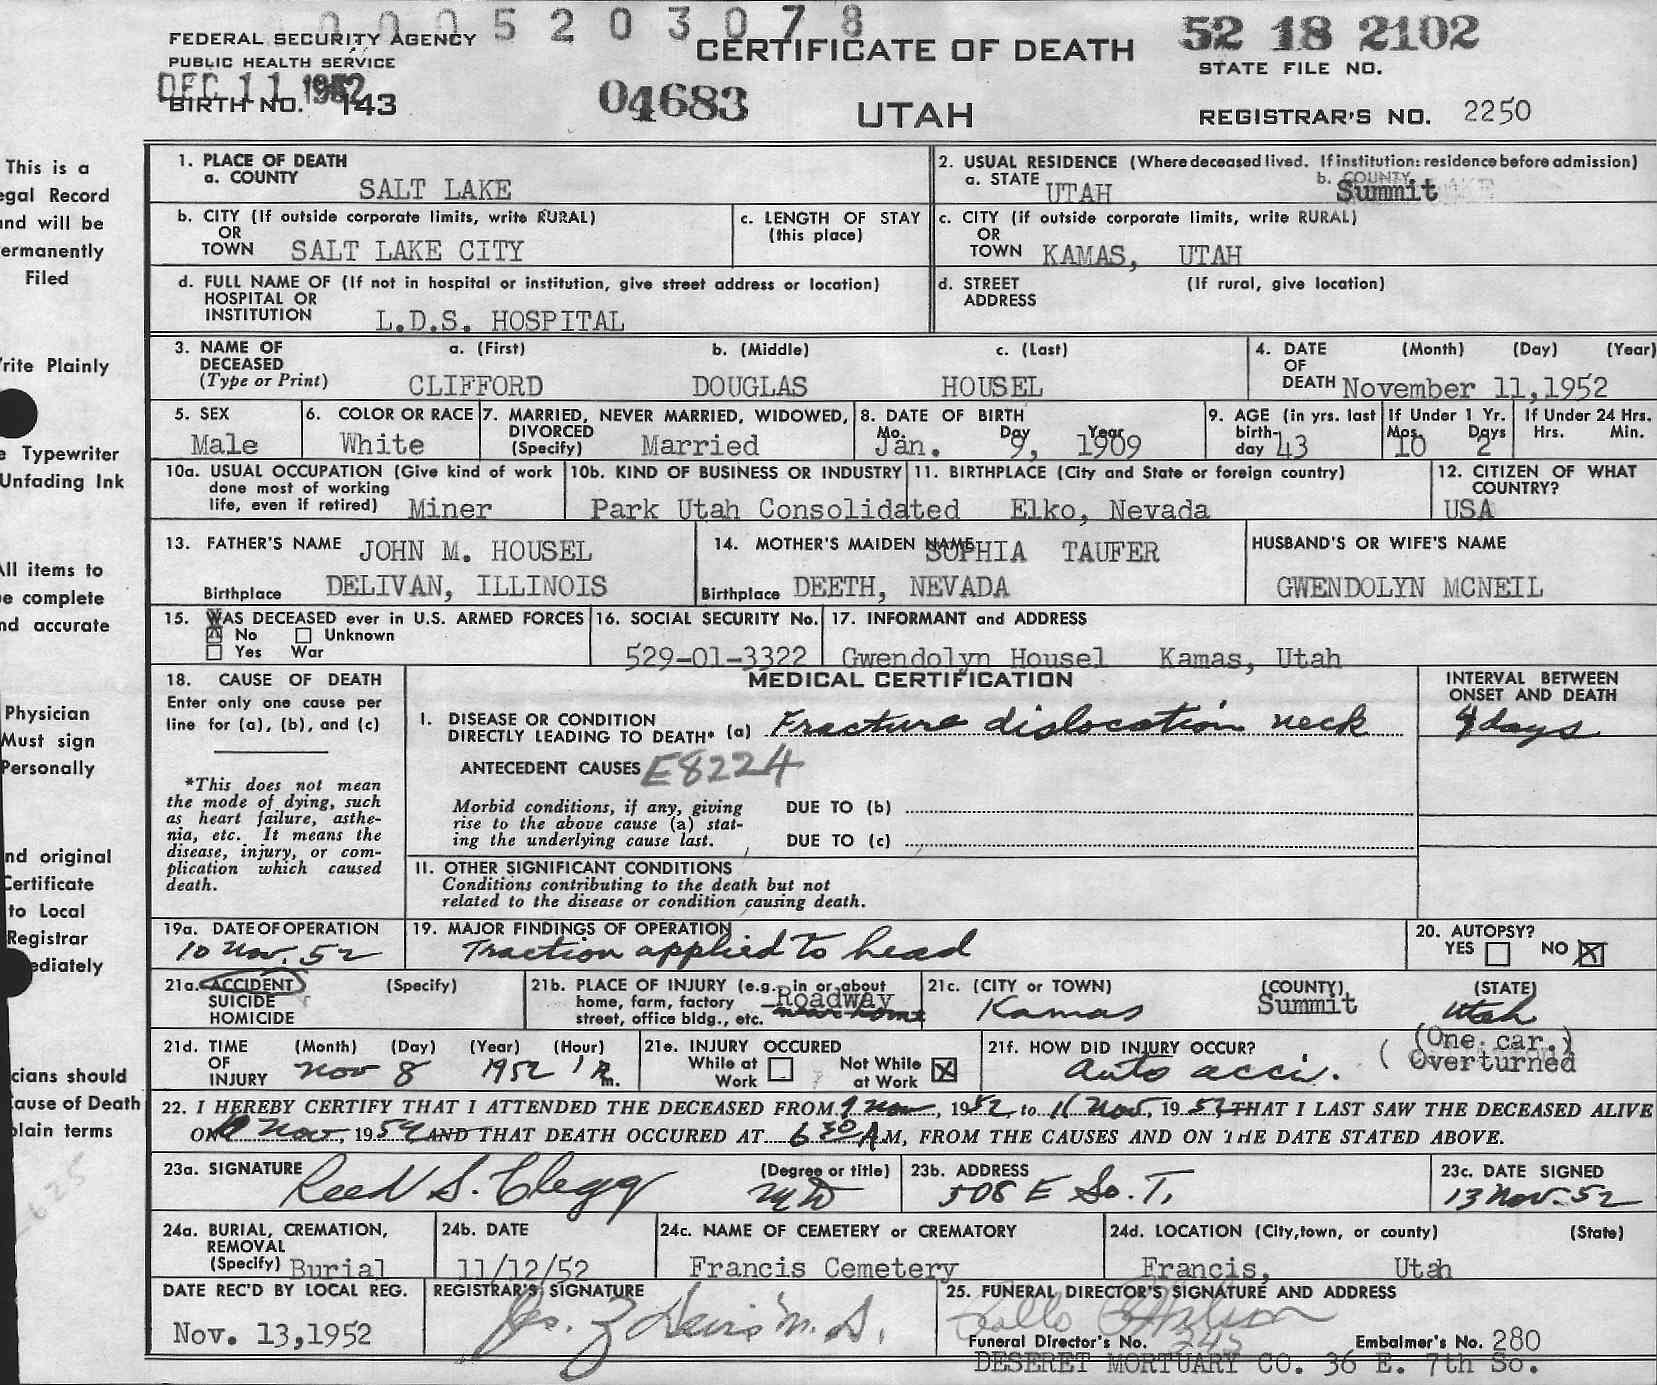 0005203078
FEDERAL SECURITY AGENCY
PUBLIC HEALTH SERVICE
CERTIFICATE OF DEATH
52 18 2102
STATE FILE NO.
DEC 11 1952
BIRTH NO. 143
04683
UTAH
REGISTRAR'S NO. 2250
This is a
egal Record
and will be
ermanently
Filed
rite Plainly
e Typewriter
Unfading Ink
All items to
be complete
nd accurate
Physician
Must sign
Personally
nd original
Certificate
to Local
Registrar
ediately
cians should
ause of Death
plain terms
1. PLACE OF DEATH
a. COUNTY SALT LAKE
2. USUAL RESIDENCE (Where deceased lived. If institution: residence before admission)
a. STATE UTAH b. COUNTY Summit
b. CITY (If outside corporate limits, write RURAL)
OR
TOWN SALT LAKE CITY
c. LENGTH OF STAY
(this place)
c. CITY (if outside corporate limits, write RURAL)
OR
TOWN KAMAS, UTAH
d. FULL NAME OF (If not in hospital or institution, give street address or location)
HOSPITAL OR
INSTITUTION L.D.S. HOSPITAL
d. STREET (If rural, give location)
ADDRESS
3. NAME OF DECEASED (Type or Print)
a. (First) b. (Middle) c. (Last)
CLIFFORD DOUGLAS HOUSEL
4. DATE OF DEATH (Month) (Day) (Year)
November 11,1952
5. SEX
Male
6. COLOR OR RACE
White
7. MARRIED, NEVER MARRIED, WIDOWED,
DIVORCED
(Specify) Married
8. DATE OF BIRTH
Mo. Day Year
Jan. 9, 1909
9. AGE (in yrs. last
birth-
day 43
If Under 1 Yr.
Mos. Days
10 2
If Under 24 Hrs.
Hrs. Min.
10a. USUAL OCCUPATION (Give kind of work
done most of working
life, even if retired) Miner
10b. KIND OF BUSINESS OR INDUSTRY
Park Utah Consolidated
11. BIRTHPLACE (City and State or foreign country)
Elko, Nevada
12. CITIZEN OF WHAT
COUNTRY?
USA
13. FATHER'S NAME JOHN M. HOUSEL
Birthplace DELIVAN, ILLINOIS
14. MOTHER'S MAIDEN NAME SOPHIA TAUFER
Birthplace DEETH, NEVADA
HUSBAND'S OR WIFE'S NAME
GWENDOLYN MCNEIL
15. WAS DECEASED ever in U.S. ARMED FORCES
No Unknown
Yes War
16. SOCIAL SECURITY No.
529-01-3322
17. INFORMANT and ADDRESS
Gwendolyn Housel Kamas, Utah
18. CAUSE OF DEATH
Enter only one cause per
line for (a), (b), and (c)
*This does not mean
the mode of dying, such
as heart failure, asthe-
nia, etc. It means the
disease, injury, or com-
plication which caused
death.
MEDICAL CERTIFICATION
INTERVAL BETWEEN
ONSET AND DEATH
I. DISEASE OR CONDITION
DIRECTLY LEADING TO DEATH* (a) Fracture dislocation neck
4 days
ANTECEDENT CAUSES E8224
Morbid conditions, if any, giving
rise to the above cause (a) stat-
ing the underlying cause last.
DUE TO (b)
DUE TO (c)
II. OTHER SIGNIFICANT CONDITIONS
Conditions contributing to the death but not
related to the disease or condition causing death.
19a. DATE OF OPERATION
10 Nov. 52
19. MAJOR FINDINGS OF OPERATION
Traction applied to head
20. AUTOPSY?
YES NO X
21a. ACCIDENT (Specify)
SUICIDE
HOMICIDE
21b. PLACE OF INJURY (e.g., in or about
home, farm, factory
street, office bldg., etc.
Roadway
near home
21c. (CITY or TOWN) (COUNTY) (STATE)
Kamas Summit Utah
21d. TIME (Month) (Day) (Year) (Hour)
OF
INJURY Nov 8 1952 1 P.m.
21e. INJURY OCCURED
While at Work
Not While at Work X
21f. HOW DID INJURY OCCUR?
Auto acci. (One car.)
Overturned
22. I HEREBY CERTIFY THAT I ATTENDED THE DECEASED FROM 9 Nov, 1952 to 11 Nov, 1952 THAT I LAST SAW THE DECEASED ALIVE
ON Nov, 1952 AND THAT DEATH OCCURED AT 6 30 A M, FROM THE CAUSES AND ON THE DATE STATED ABOVE.
23a. SIGNATURE (Degree or title)
Reed S. Clegg MD
23b. ADDRESS
508 E So. T.
23c. DATE SIGNED
13 Nov. 52
24a. BURIAL, CREMATION,
REMOVAL
(Specify) Burial
24b. DATE
11/12/52
24c. NAME OF CEMETERY or CREMATORY
Francis Cemetery
24d. LOCATION (City, town, or county) (State)
Francis, Utah
DATE REC'D BY LOCAL REG.
Nov. 13,1952
REGISTRAR'S SIGNATURE
25. FUNERAL DIRECTOR'S SIGNATURE AND ADDRESS
Funeral Director's No. 245 Embalmer's No. 280
DESERET MORTUARY CO. 36 E. 7th So.